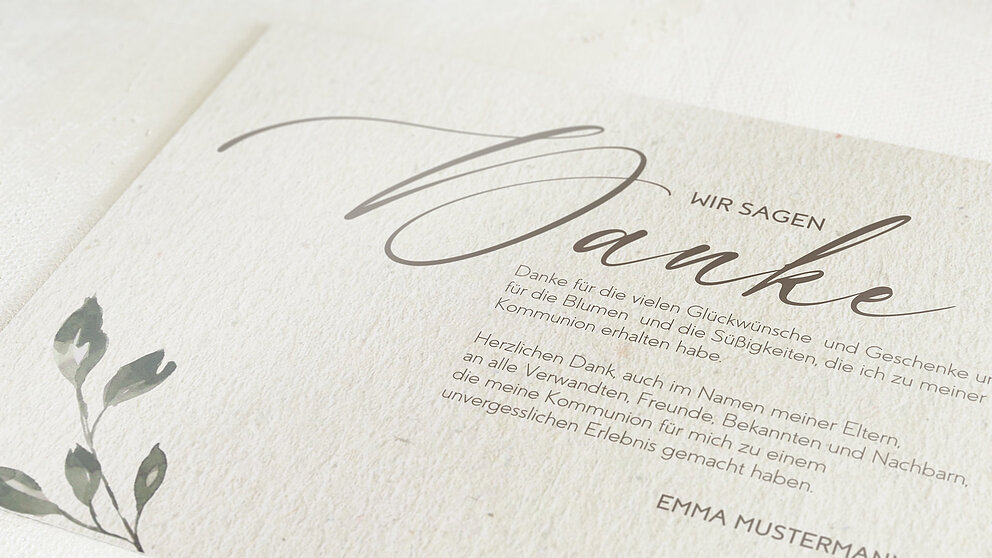 WIR SAGEN
Danke
Danke für die vielen Glückwünsche und Geschenke
für die Blumen und die Süßigkeiten, die ich zu meiner
Kommunion erhalten habe.
Herzlichen Dank, auch im Namen meiner Eltern,
an alle Verwandten, Freunde, Bekannten und Nachbarn,
die meine Kommunion für mich zu einem
unvergesslichen Erlebnis gemacht haben.
EMMA